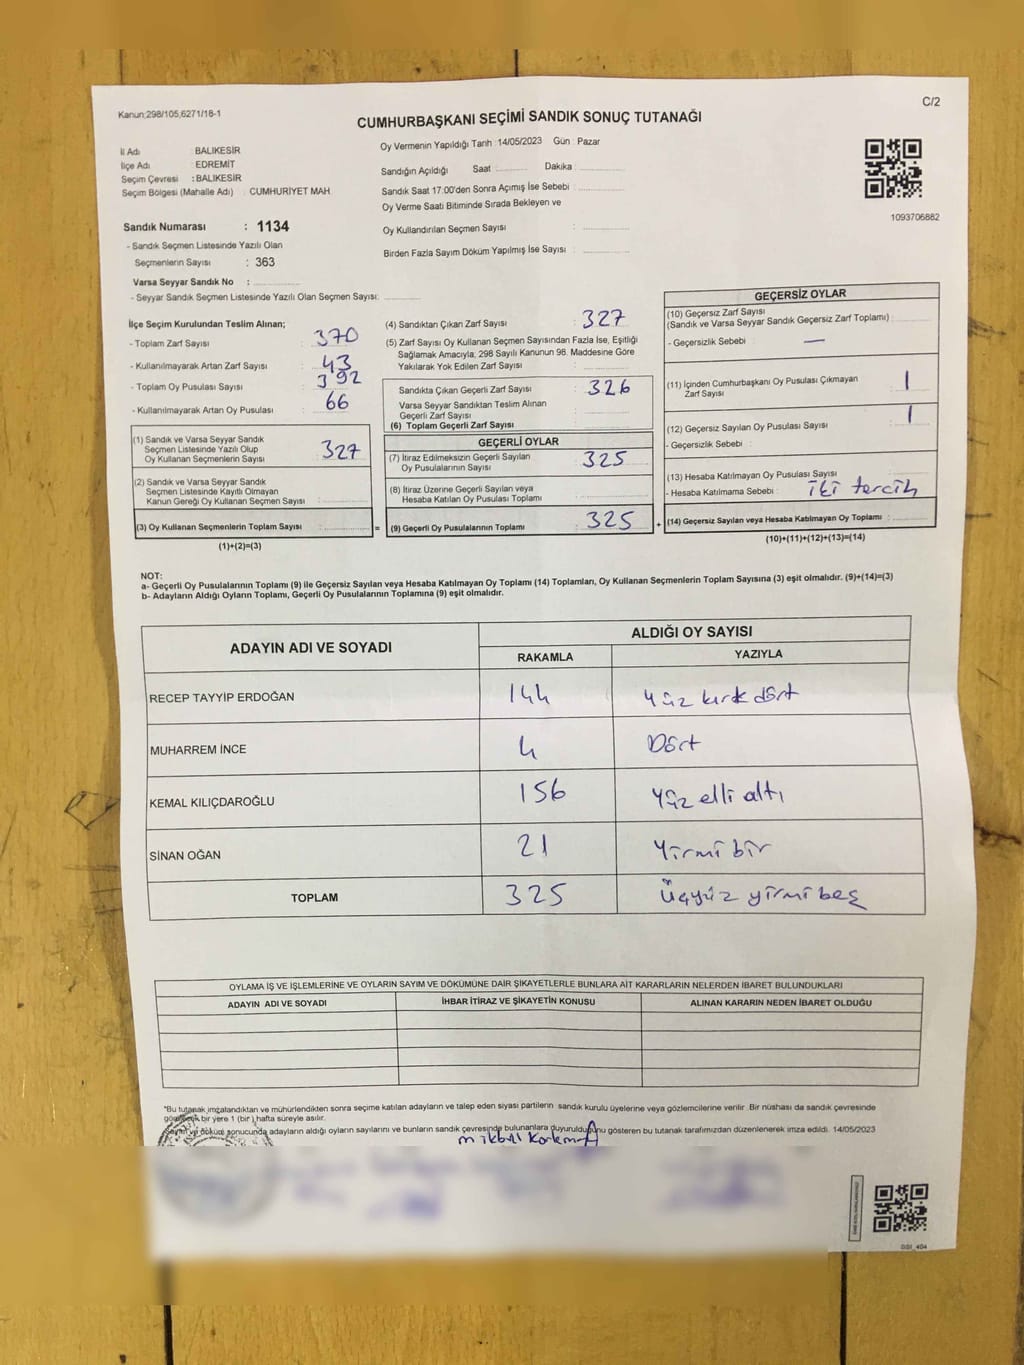 Kanun;298/105,6271/18-1
C/2
CUMHURBAŞKANI SEÇİMİ SANDIK SONUÇ TUTANAĞI
İl Adı : BALIKESİR
İlçe Adı : EDREMİT
Seçim Çevresi : BALIKESİR
Seçim Bölgesi (Mahalle Adı) : CUMHURİYET MAH.
Oy Vermenin Yapıldığı Tarih :14/05/2023 Gün : Pazar
Sandığın Açıldığı Saat Dakika :
Sandık Saat 17:00'den Sonra Açımış İse Sebebi :
Oy Verme Saati Bitiminde Sırada Bekleyen ve
Oy Kullandırılan Seçmen Sayısı :
Birden Fazla Sayım Döküm Yapılmış İse Sayısı :
1093706882
Sandık Numarası : 1134
- Sandık Seçmen Listesinde Yazılı Olan
Seçmenlerin Sayısı : 363
Varsa Seyyar Sandık No :
- Seyyar Sandık Seçmen Listesinde Yazılı Olan Seçmen Sayısı:
İlçe Seçim Kurulundan Teslim Alınan;
- Toplam Zarf Sayısı : 370
- Kullanılmayarak Artan Zarf Sayısı : 43
- Toplam Oy Pusulası Sayısı : 392
- Kullanılmayarak Artan Oy Pusulası : 66
(1) Sandık ve Varsa Seyyar Sandık
Seçmen Listesinde Yazılı Olup
Oy Kullanan Seçmenlerin Sayısı : 327
(2) Sandık ve Varsa Seyyar Sandık
Seçmen Listesinde Kayıtlı Olmayan
Kanun Gereği Oy Kullanan Seçmen Sayısı :
(3) Oy Kullanan Seçmenlerin Toplam Sayısı : =
(1)+(2)=(3)
(4) Sandıktan Çıkan Zarf Sayısı : 327
(5) Zarf Sayısı Oy Kullanan Seçmen Sayısından Fazla İse, Eşitliği
Sağlamak Amacıyla; 298 Sayılı Kanunun 98. Maddesine Göre
Yakılarak Yok Edilen Zarf Sayısı :
Sandıkta Çıkan Geçerli Zarf Sayısı : 326
Varsa Seyyar Sandıktan Teslim Alınan
Geçerli Zarf Sayısı
(6) Toplam Geçerli Zarf Sayısı :
GEÇERLİ OYLAR
(7) İtiraz Edilmeksizin Geçerli Sayılan
Oy Pusulalarının Sayısı : 325
(8) İtiraz Üzerine Geçerli Sayılan veya
Hesaba Katılan Oy Pusulası Toplamı :
(9) Geçerli Oy Pusulalarının Toplamı : 325 +
GEÇERSİZ OYLAR
(10) Geçersiz Zarf Sayısı
(Sandık ve Varsa Seyyar Sandık Geçersiz Zarf Toplamı) :
- Geçersizlik Sebebi : —
(11) İçinden Cumhurbaşkanı Oy Pusulası Çıkmayan
Zarf Sayısı : 1
(12) Geçersiz Sayılan Oy Pusulası Sayısı : 1
- Geçersizlik Sebebi :
(13) Hesaba Katılmayan Oy Pusulası Sayısı :
- Hesaba Katılmama Sebebi : iki tercih
(14) Geçersiz Sayılan veya Hesaba Katılmayan Oy Toplamı :
(10)+(11)+(12)+(13)=(14)
NOT:
a- Geçerli Oy Pusulalarının Toplamı (9) ile Geçersiz Sayılan veya Hesaba Katılmayan Oy Toplamı (14) Toplamları, Oy Kullanan Seçmenlerin Toplam Sayısına (3) eşit olmalıdır. (9)+(14)=(3)
b- Adayların Aldığı Oyların Toplamı, Geçerli Oy Pusulalarının Toplamına (9) eşit olmalıdır.
ADAYIN ADI VE SOYADI
ALDIĞI OY SAYISI
RAKAMLA YAZIYLA
RECEP TAYYİP ERDOĞAN 144 Yüz kırk dört
MUHARREM İNCE 4 Dört
KEMAL KILIÇDAROĞLU 156 Yüz elli altı
SİNAN OĞAN 21 Yirmi bir
TOPLAM 325 Üçyüz yirmi beş
OYLAMA İŞ VE İŞLEMLERİNE VE OYLARIN SAYIM VE DÖKÜMÜNE DAİR ŞİKAYETLERLE BUNLARA AİT KARARLARIN NELERDEN İBARET BULUNDUKLARI
ADAYIN ADI VE SOYADI İHBAR İTİRAZ VE ŞİKAYETİN KONUSU ALINAN KARARIN NEDEN İBARET OLDUĞU
*Bu tutanak imzalandıktan ve mühürlendikten sonra seçime katılan adayların ve talep eden siyasi partilerin sandık kurulu üyelerine veya gözlemcilerine verilir .Bir nüshası da sandık çevresinde
bir yere 1 (bir) hafta süreyle asılır.
ve dökümü sonucunda adayların aldığı oyların sayılarını ve bunların sandık çevresinde bulunanlara duyurulduğunu gösteren bu tutanak tarafımızdan düzenlenerek imza edildi. 14/05/2023